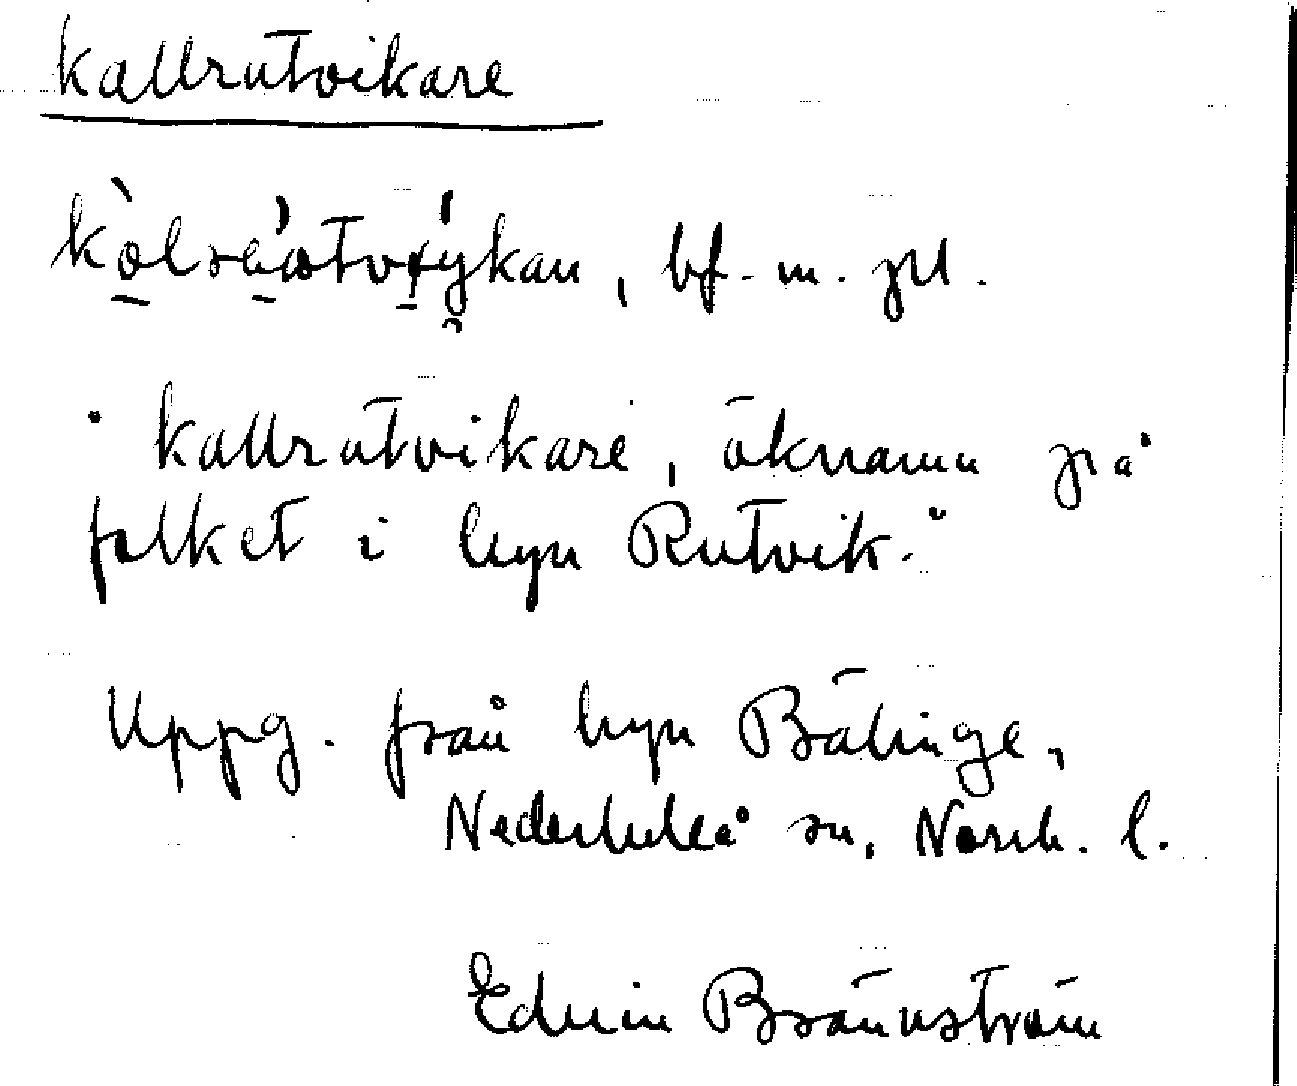 kallrutvikare
, bf. m. pl.
"kallrutvikare, öknamn på
folket i byn Rutvik."
Uppg. från byn Bälinge,
Nederluleå sn, Norrb. l.
Edvin Brännström